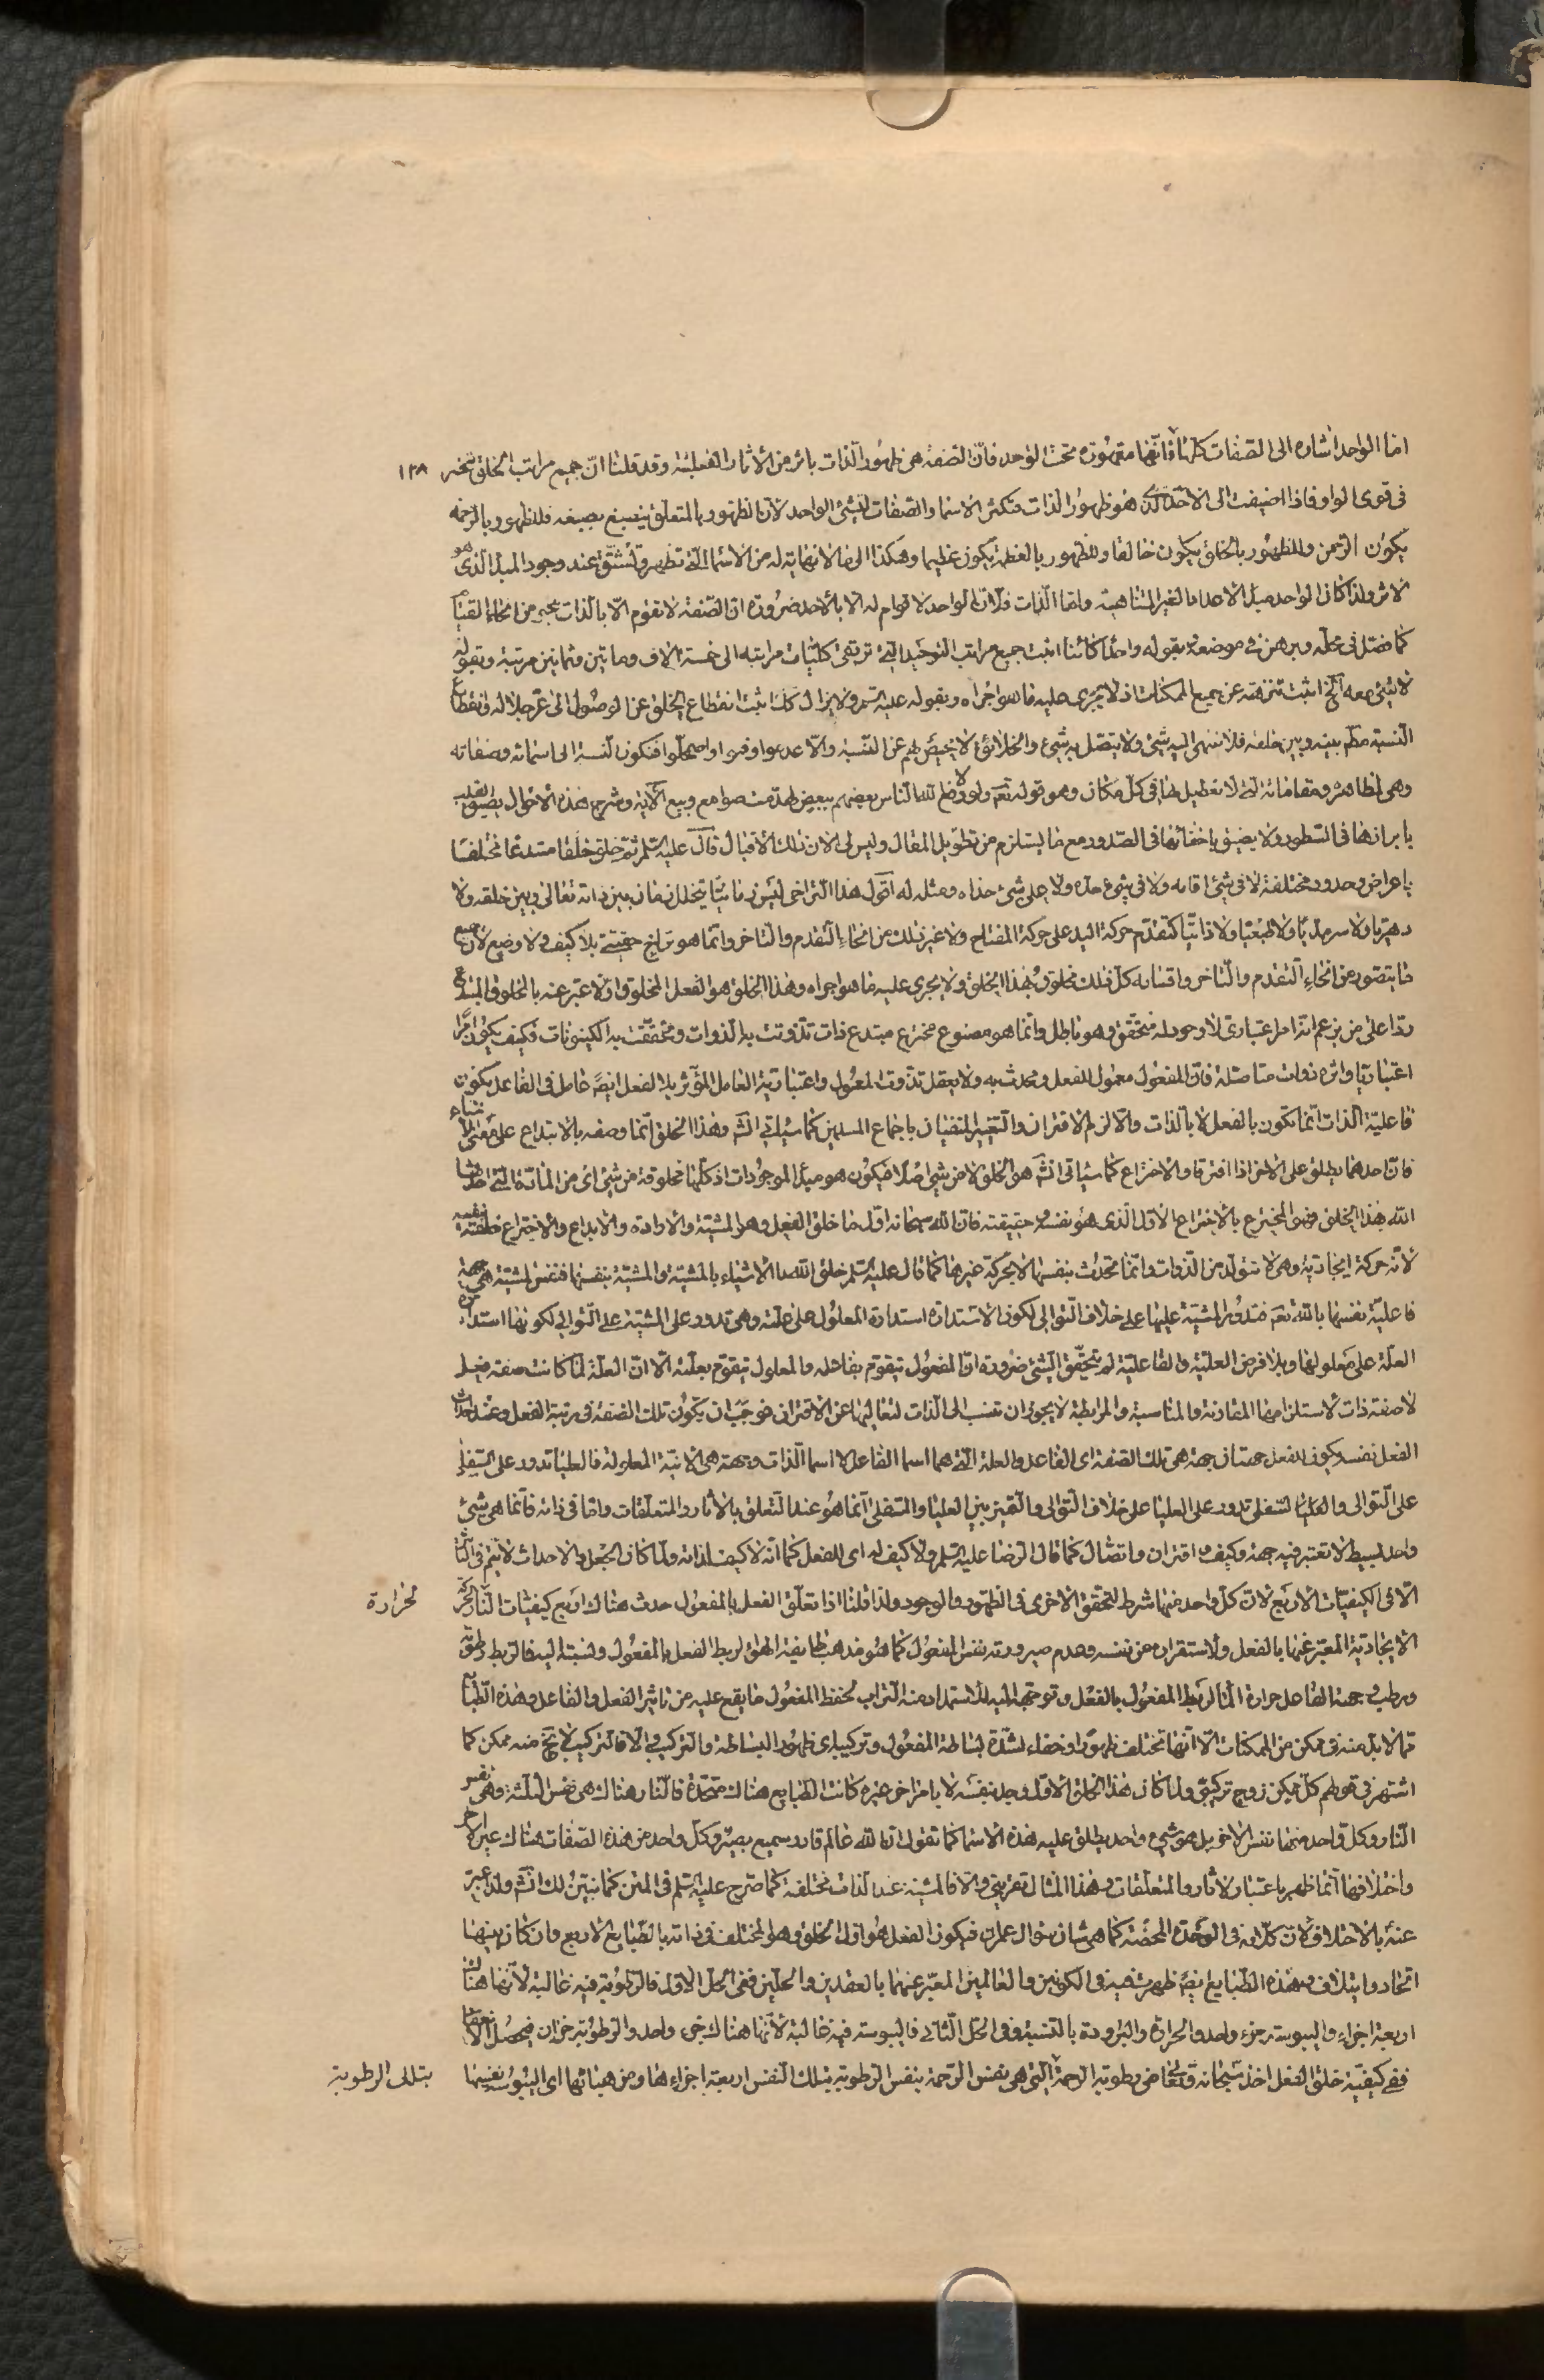 اما الواحد اشاره الى الصفات كلها فانها مقهورة تحت الواحد فان الصفة هى ظهور الذات باثر من الاثار الفعلية وقد قلنا ان جميع مراتب الخلق تنحصر ١٣٨
فى قوى الواو فاذا اضيفت الى الاحد الذى هو ظهور الذات فتكثر الاسماء والصفات للشئ الواحد لان الظهور بالمتعلق ينصبغ بصبغه فللظهور بالرحمة
يكون الرحمن وللظهور بالخلق يكون خالقا وللظهور بالعظمة يكون عظيما وهكذا الى ما لا نهاية له من الاسماء التى تظهر وتشتق عند وجود المبدا الذى هو
الاثر ولذا كان الواحد مبدا الاعداد الغير المتناهية واما الذات فلان الواحد لا قوام له الا بالاحد ضرورة ان الصفة لا تقوم الا بالذات بنحو من انحاء القيام
كما فصل فى محله وبرهن فى موضعه فبقوله واحدا كائنا اثبت جميع مراتب التوحيد التى ترتقى كليات مراتبه الى خمسة الاف ومأتين وثمانين مرتبة وبقوله
لا شئ معه الخ اثبت تنزهه عن جميع الممكنات اذ لا يجرى عليه ما هو اجراه وبقوله عليه السلم ولا يزال كذلك اثبت انقطاع الخلق عن الوصول الى عز جلاله فانقطاع
النسبة مطلقا بينه وبين خلقه فلا ينتهى اليه شئ ولا يتصل به شئ والخلائق لا محيص لهم عن النسبة والا عدموا وفنوا واضمحلوا فتكون النسبة الى اسمائه وصفاته
وهى مظاهره ومقاماته التى لا تعطيل لها فى كل مكان وهو قوله تعالى ولولا دفع الله الناس بعضهم ببعض لهدمت صوامع وبيع الآية وشرح هذه الاحوال يضيق القلب
بابرازها فى السطور ولا يضيق باخفائها فى الصدور مع ما يستلزم من تطويل المقال وليس لى الان ذلك الاقبال قال عليه السلم ثم خلق خلقا مبتدعا مختلفا
باعراض وحدود مختلفة لا فى شئ اقامه ولا فى شئ حده ولا على شئ حذاه ومثله له اقول هذا التراخى ليس زمانيا يتخلل زمان بين ذاته تعالى وبين خلقه ولا
دهريا ولا سرمديا ولا طبعيا ولا ذاتيا كتقدم حركة اليد على حركة المفتاح ولا غير ذلك من انحاء التقدم والتاخر وانما هو تراخ حقيقى بلا كيف ولا وضع لان جميع
ما يتصور من انحاء التقدم والتاخر واقسامه كل ذلك مخلوق بهذا الخلق ولا يجرى عليه ما هو اجراه وهذا الخلق هو الفعل المخلوق اولا عبر عنه بالمخلوق المبتدع
ردا على من يزعم انه امر اعتبارى لا وجود له متحقق وهو باطل وانما هو مصنوع مخترع مبتدع ذات تذوتت به الذوات وتحققت به الكينونات فكيف يكون امرا
اعتباريا واثره ذوات متاصلة فان المفعول معمول للفعل ومحدث به ولا يعقل تذوت المعمول واعتبارية العامل المؤثر بلا الفعل ايضا عامل فى الفاعل يكون
فاعلية الذات انما تكون بالفعل لا بالذات والا لزم الاقتران والتغيير المنفيان باجماع المسلمين كما سياتى انشاء الله وهذا الخلق انما وصفه بالابتداع على معنى الانشاء
فان احدهما يطلق على الاخر اذا افترقا والاختراع كما سياتى انشاء الله هو الخلق لا من شئ اصلا فيكون هو مبدا الموجودات اذ كلها مخلوقة من شئ اى من المادة التى احدثها
الله بهذا الخلق فهو المخترع بالاختراع الاول الذى هو نفسه وحقيقته فان الله سبحانه اول ما خلق الفعل وهو المشية والارادة والابداع والاختراع خلقه بنفسه
لانه حركة ايجادية وهى لا تتولد من الذوات وانما تحدث بنفسها لا بحركة غيرها كما قال عليه السلم خلق الله الاشياء بالمشية والمشية بنفسها فنفس المشية هى جهة
فاعلية نفسها بالله تعالى فتدور المشية عليها على خلاف التوالى لكون الاستدارة استدارة المعلول على علته وهى تدور على المشية على التوالى لكونها استدارة
العلة على معلولها وبلا فرض العلية والفاعلية لم يتحقق الشئ ضرورة ان المفعول يتقوم بفاعله والمعلول يتقوم بعلته الا ان العلة لما كانت صفة فعل
لا صفة ذات لاستلزامها المقارنة والمناسبة والمرابطة لا يجوز ان تنسب الى الذات لتعاليها عن الاقتران فوجب ان يكون تلك الصفة فى مرتبة الفعل وعند احداث
الفعل نفسه ويكون للفعل جهتان جهة هى تلك الصفة اى الفاعل والعلة التى هما اسما الفاعل لا اسما الذات وجهة هى الانية المعلولة فالعليا تدور على السفلى
على التوالى والسفلى تدور على العليا على خلاف التوالى والتميز بين العليا والسفلى انما هو عند التعلق بالاثار والمتعلقات واما فى ذاته فانما هى شئ
واحد بسيط لا تعتبر فيه جهة وكيف واقتران واتصال كما قال الرضا عليه السلم ولا كيف له اى للفعل كما انه لا كيف لذاته ولما كان الجعل والاحداث لا يتم فى
الا فى الكيفيات الاربع لان كل واحد منها شرط لتحقق الاخرى فى الظهور والوجود ولذا قلنا اذا تعلق الفعل بالمفعول حدث هناك اربع كيفيات النار لحركته لحرارة
الايجادية المعبر عنها بالفعل ولاستقراره عن نفسه وعدم صيرورته نفس المفعول كما هو مذهب طايفة الهواء لربط الفعل بالمفعول ونسبته اليه فالربط رطوبة
ورطب وجهة الفاعل حرارة الماء لربط المفعول بالفعل وتوجهه اليه للاستمداد منه التراب لحفظ المفعول ما يقع عليه من تاثير الفعل والفاعل وهذه الطبايع
مما لا بد منه فى ممكن من الممكنات الا انها تختلف ظهورا وخفاء لشدة بساطة المفعول وتركيبه اى ظهور البساطة والتركيب والا فالتركيب لا يخ منه ممكن كما
اشتهر فى قولهم كل ممكن زوج تركيبى ولما كان هذا الخلق الاول وجد بنفسه لا بامر اخر غيره كانت الطبايع هناك متحدة فالنار هناك هى نفس الثلثة وهى نفس
النار وكل واحد منها نفس الاخر بل هو شئ واحد يطلق عليه هذه الاسماء كما تقول ان الله عالم قادر سميع بصير وكل واحد من هذه الصفات هناك عين الاخر
واختلافها انما ظهر باعتبار الاثار والمتعلقات وهذا المثال تقريبى والا فالمشية عند الذات مختلفة كما صرح عليه السلم فى المتن كما نبين لك انشاء الله ولذا عبر
عنه بالاختلاف كلامه فى الوحدة المحضة كما هى شان سؤال عمران فيكون الفعل هو اول الخلق وهو المختلف فى ذاته بالطبايع الاربع وان كان بينها
اتحاد وايتلاف وهذه الطبايع ايضا ظهر فى الكونين والعالمين المعبر عنهما بالعقدين والحلين ففى الحل الاول فالرطوبة فيه غالبة لانها هناك
اربعة اجزاء واليبوسة جزء واحد والحرارة والبرودة بالنسبة وفى الحل الثانى فاليبوسة فيه غالبة لانها هناك جزء واحد والرطوبة جزءان فيحصل الانعقاد
ففى كيفية خلق الفعل اخذ سبحانه وتعالى من رطوبة الرحمة التى هى نفس الرحمة بنفس الرطوبة بتلك النفس اربعة اجزاء ومن هبائها اى اليبوسة نفسها بتلك الرطوبة